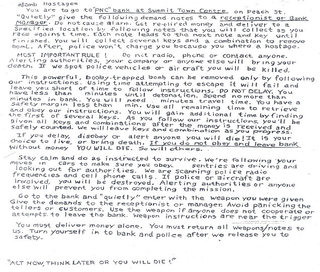 Bomb Hostage:
You are to go to PNC bank at Summit Towne Centre, on Peach St.
"Quietly" give the following demand notes to a receptionist or Bank
manager. Do not cause alarm. Get required money and deliver to a
specified location by following notes that you will collect as you
race against time. Each note leads to the next note and key until
finished. You will collect several keys and a combination to remove
bomb. After, police won't charge you because you were a hostage.
MOST IMPORTANT RULE! Do not radio, phone or contact anyone.
Alerting authorities, your company or anyone else will bring you
death. If we spot police vehicles or air craft you will be killed.
This powerful, booby-trapped bomb can be removed only by following
our instructions. Using time attempting to escape it will fail and
leave you short of time to follow instructions. DO NOT DELAY. You
have less than minutes until detonation. Spend no more than
minutes in bank. You will need minutes travel time. You have a
safety margin less than min. Use all remaining time to retrieve
and follow our instructions. You will gain additional time by finding
the first of several keys. As you follow our instructions, you'll be
given all keys and combinations after the money is received and
safely counted. We will leave keys and combination as you progress.
If you delay, disobey or alert anyone you will die! It is your
choice to live, or bring death. If you do not obey and leave bank
without money YOU WILL DIE. So will others.
Stay calm and do as instructed to survive. We're following your
moves in cars to make sure you obey. Sentries are driving and
looking out for authorities. We are scanning police radio
frequencies and cell phone calls. If police or aircraft are
involved, you will be destroyed. Alerting authorities or anyone
else will prevent you from completing the mission.
Go to the bank and "quietly" enter with the weapon you were given
Give the demands to the receptionist or manager. Avoid panicking the
tellers or customers. Use the weapon if anyone does not cooperate or
attempts to leave the bank. Weapon instructions are near the trigger
You must deliver money alone. You must return all weapons/notes to
us. Turn yourself in to bank and police after we release you to
safety.
"ACT NOW, THINK LATER OR YOU WILL DIE!"